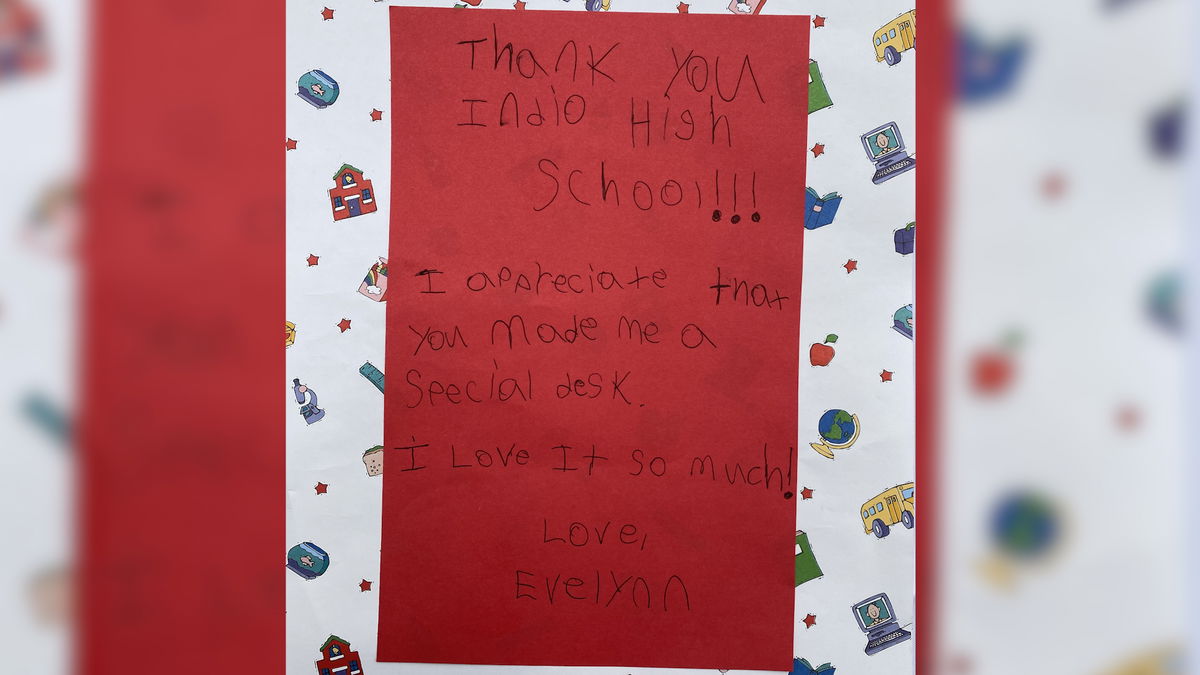 Thank You
Indio High
School!!!
I appreciate that
you made me a
special desk.
I Love It so much!
Love,
Evelynn